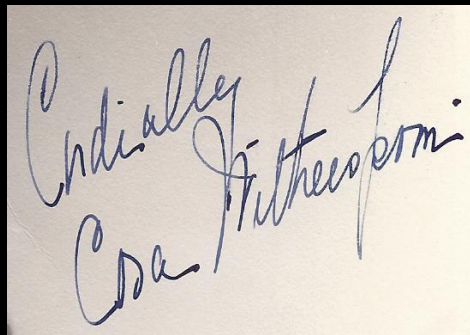 Cordially
Cora Witherspoon